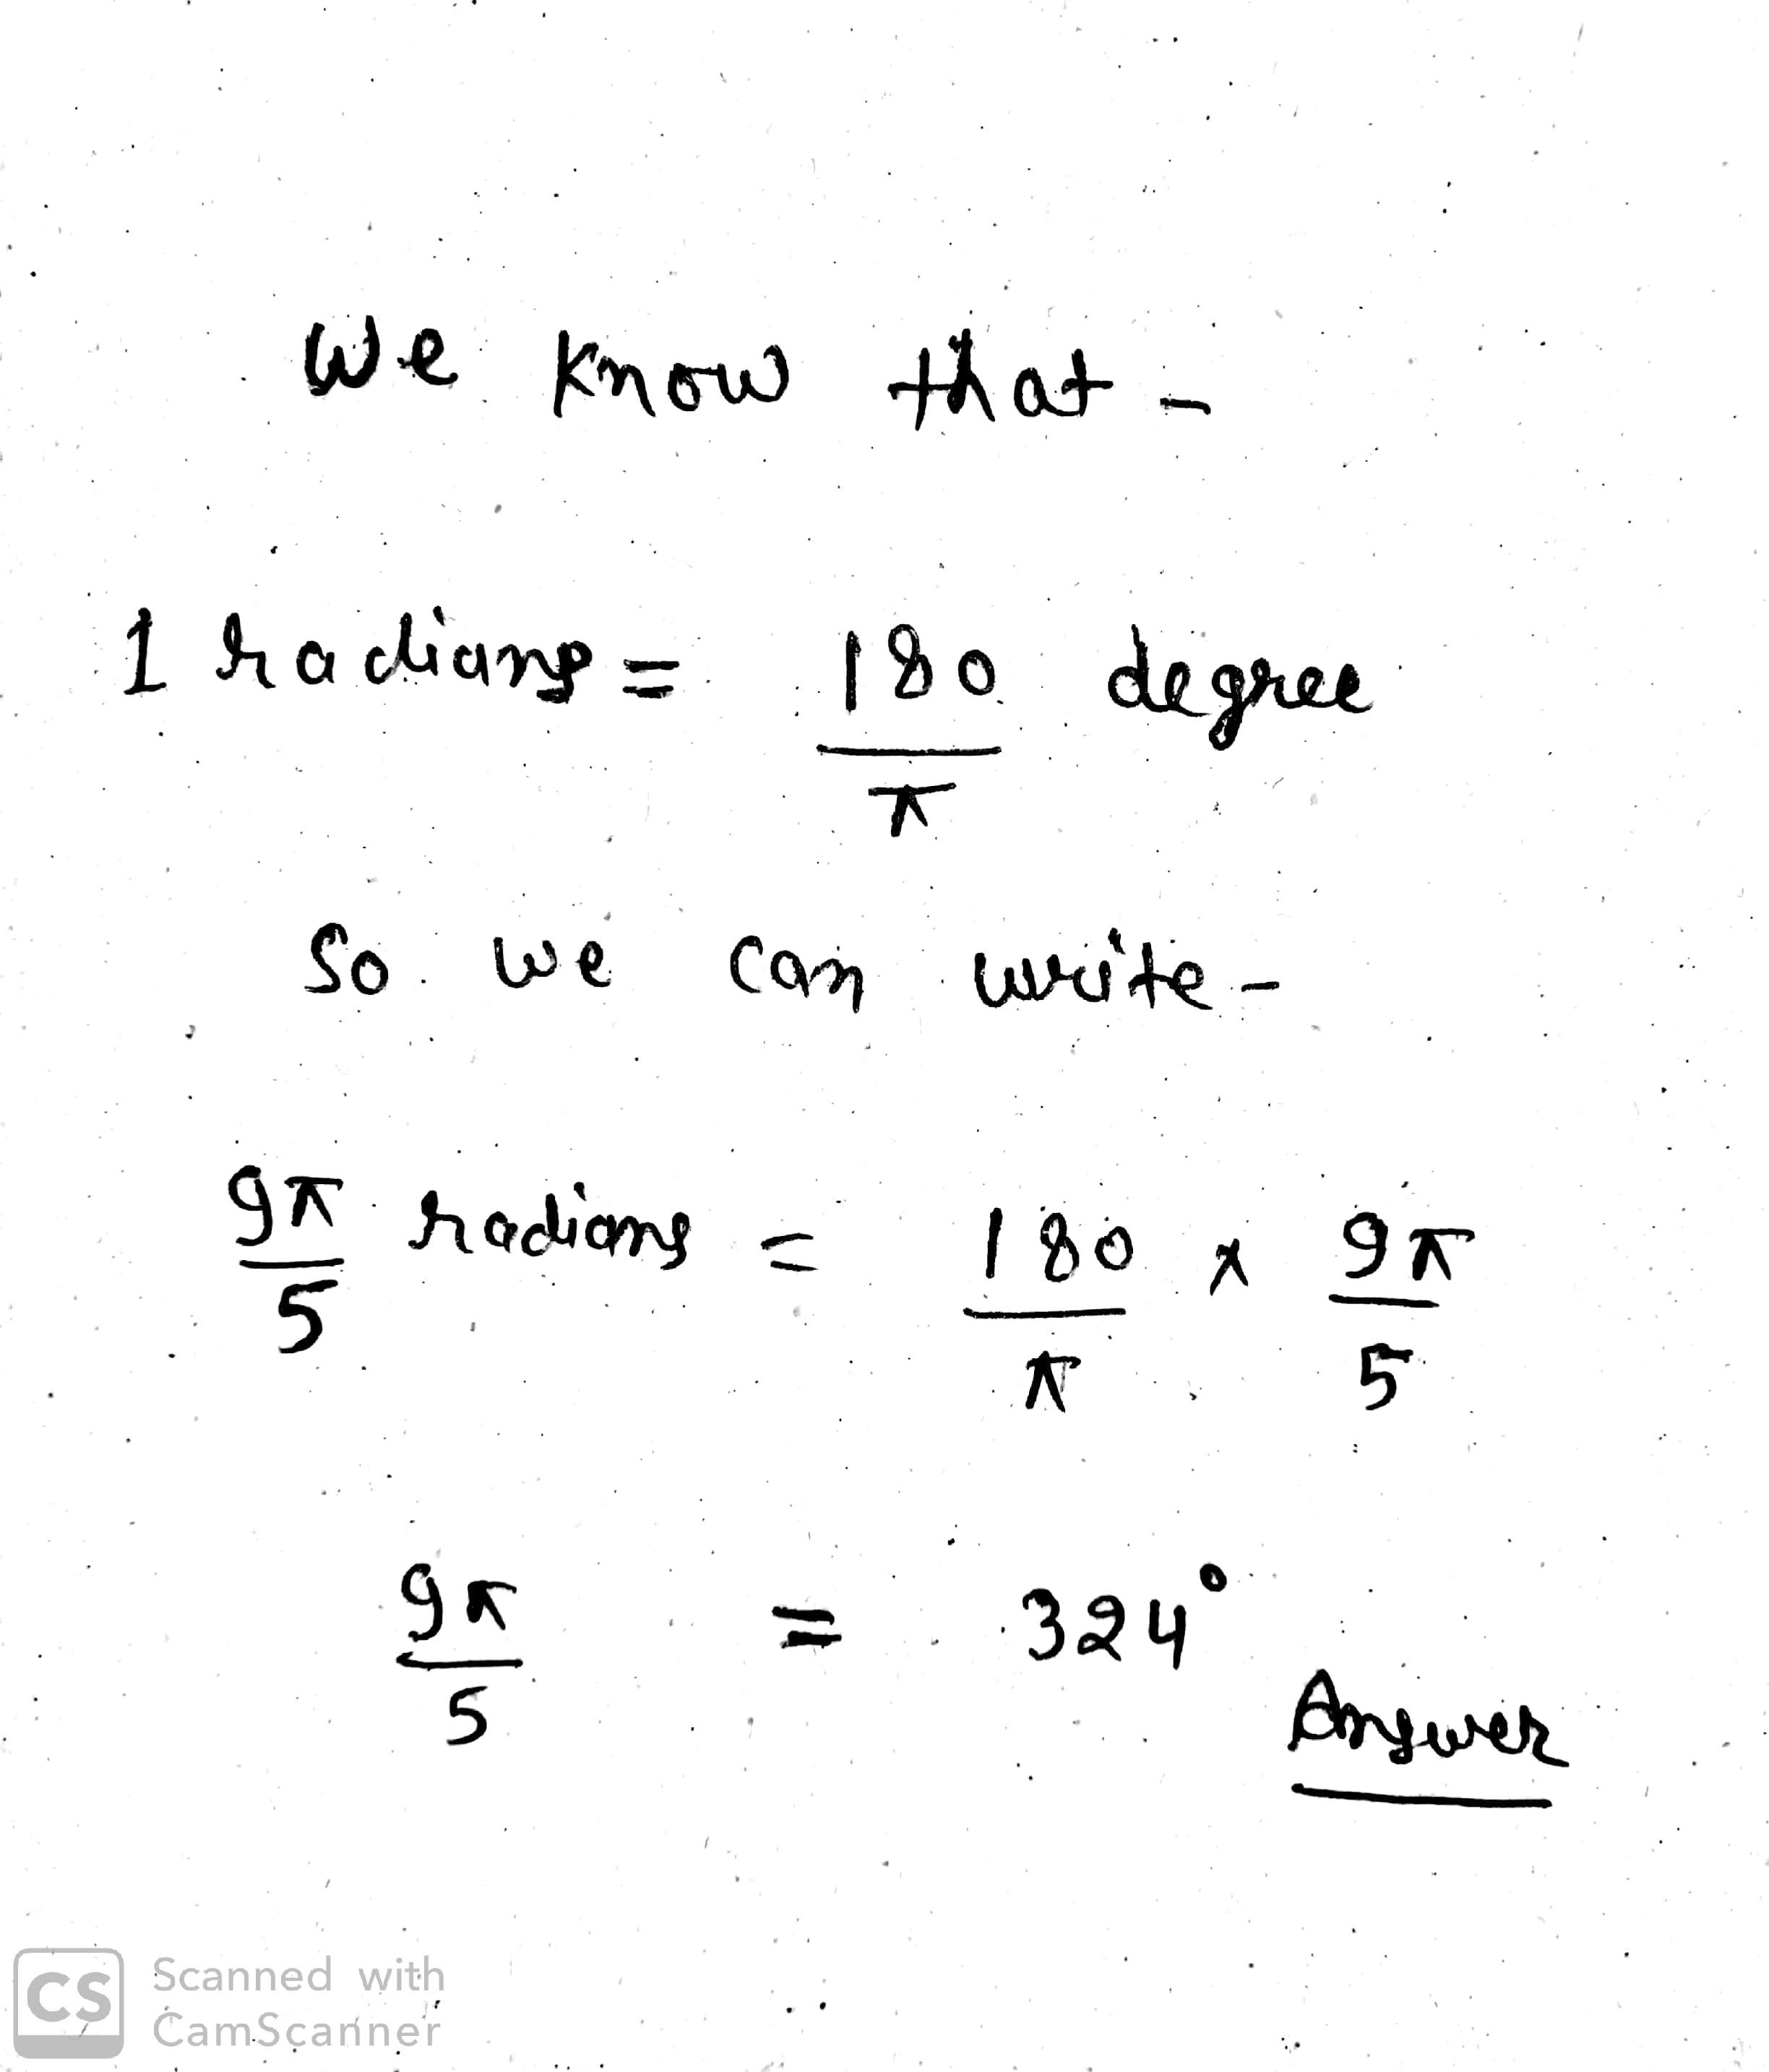 We know that -
1 radians = 180/π degree
So we can write -
9π/5 radians = 180/π × 9π/5
9π/5 = 324°
Answer
CS Scanned with
CamScanner